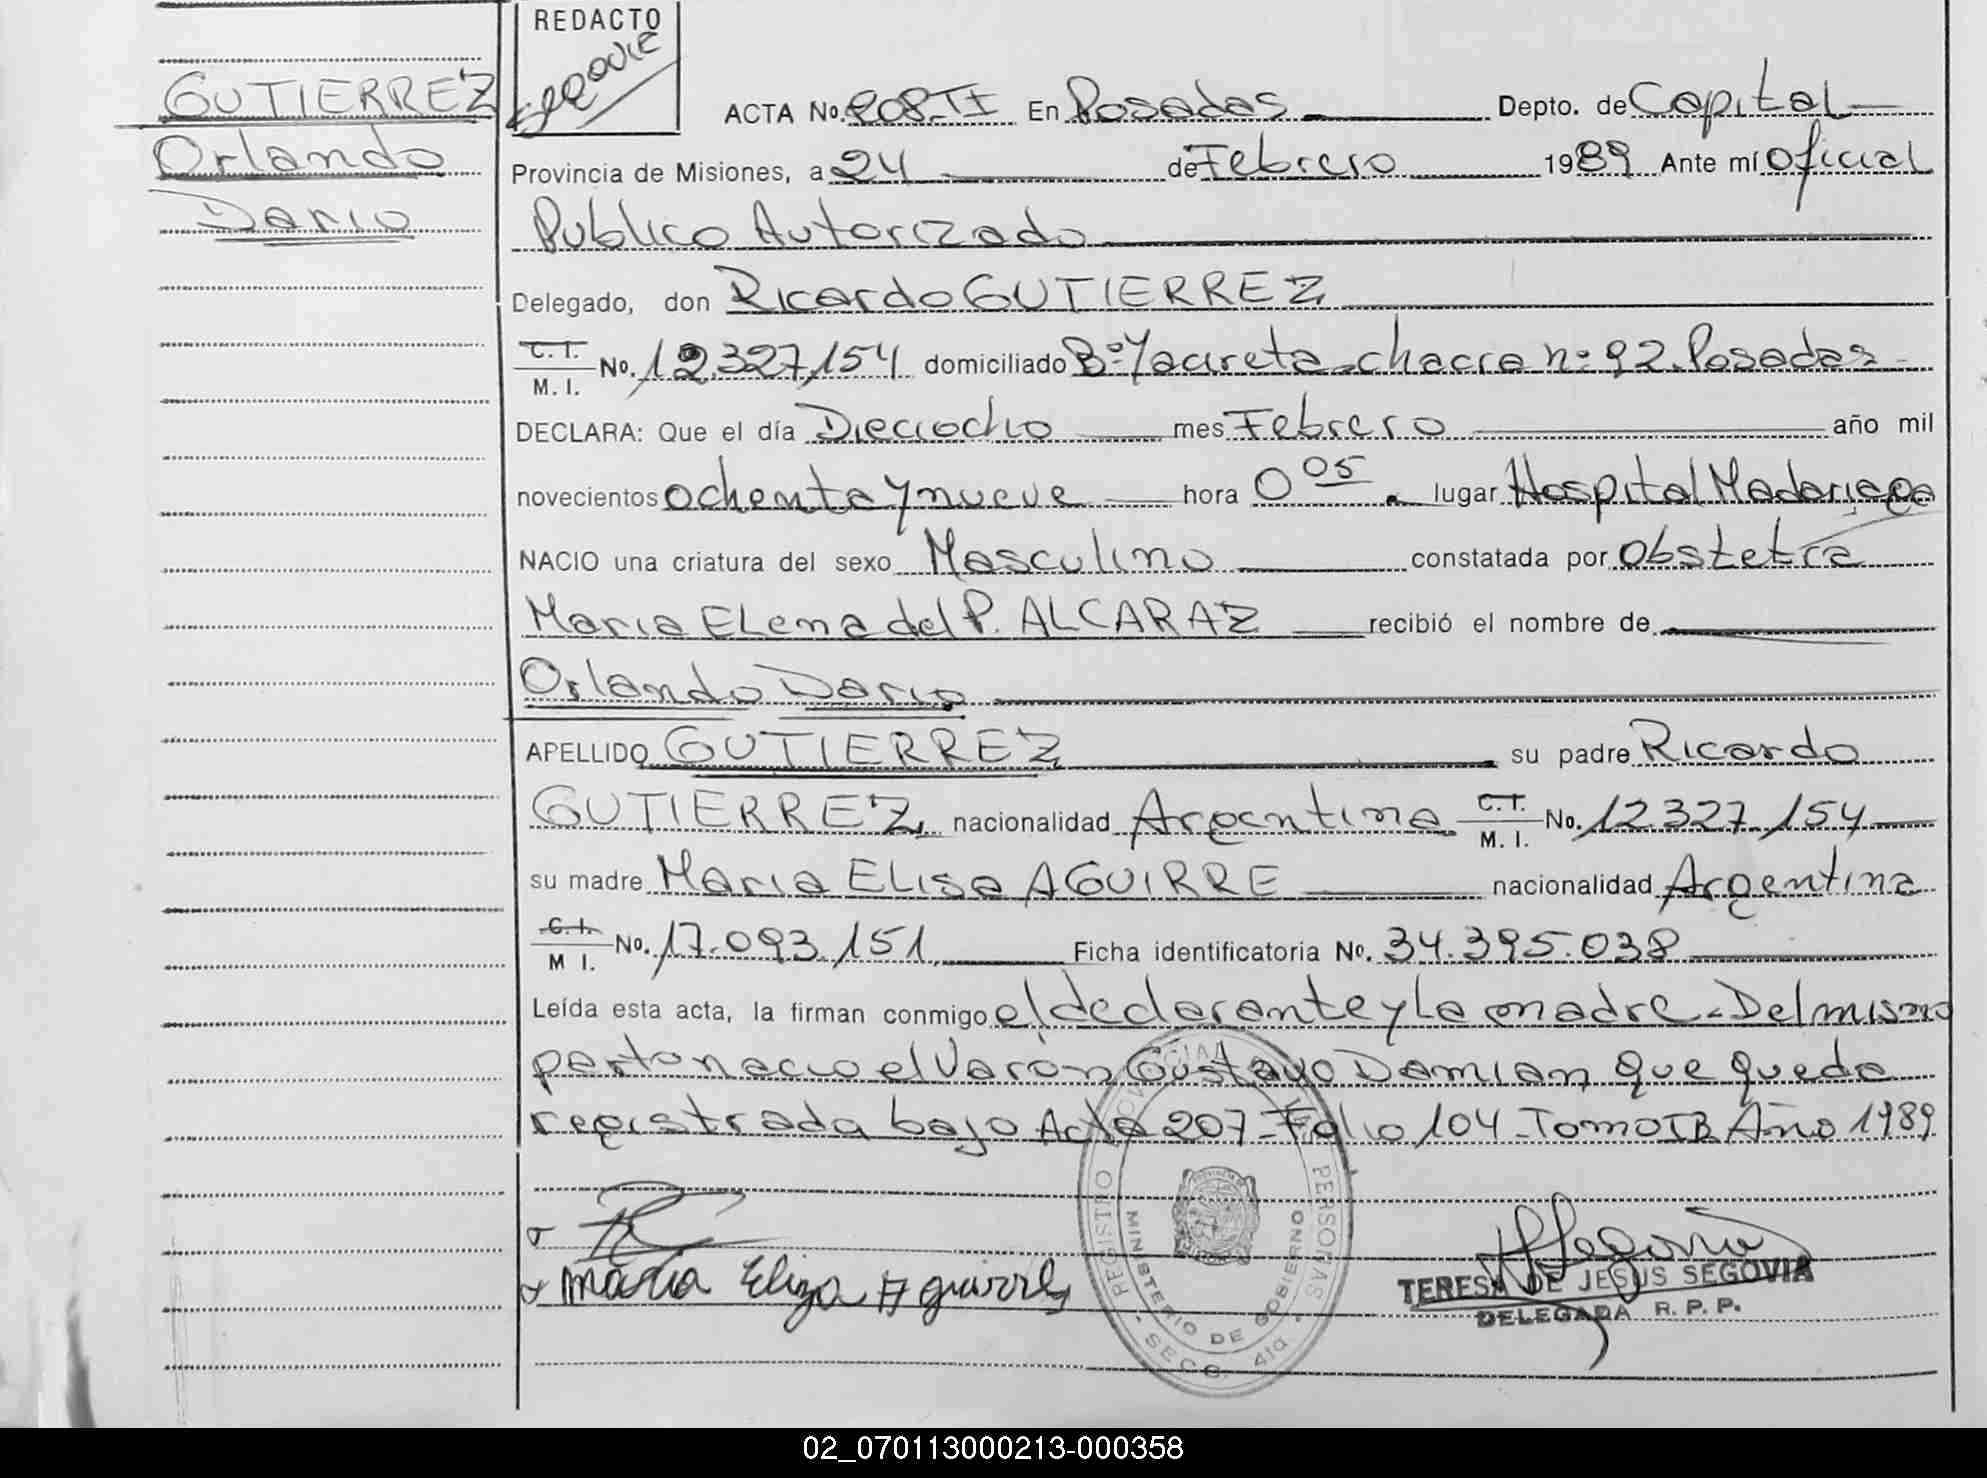 GUTIERREZ
Orlando
Dario
REDACTO
ACTA No. 208-TI En Posadas Depto. de Capital
Provincia de Misiones, a 24 de Febrero 1989 Ante mí Oficial
Publico Autorizado
Delegado, don Ricardo GUTIERREZ
C. I.
M. I. No. 12.327,154 domiciliado Bº: Yacireta - chacra nº: 92. Posadas
DECLARA: Que el día Dieciocho mes Febrero año mil
novecientos ochenta y nueve hora 0 05 lugar Hospital Madariaga
NACIO una criatura del sexo Masculino constatada por Obstetra
Maria Elena del P. ALCARAZ recibió el nombre de
Orlando Dario
APELLIDO GUTIERREZ su padre Ricardo
GUTIERREZ nacionalidad Argentina C. I. M. I. No. 12.327.154
su madre Maria Elisa AGUIRRE nacionalidad Argentina
C. I.
M I. No. 17.093.151 Ficha identificatoria No. 34.395.038
Leída esta acta, la firman conmigo el declarante y la madre - Del mismo
parto nacio el Varon Gustavo Damian que queda
registrada bajo Acta 207 - Folio 104 - Tomo IB Año 1989
Maria Eliza Aguirre
REGISTRO PROVINCIAL DE LAS PERSONAS
MINISTERIO DE GOBIERNO
SECC. 41a
TERESA DE JESUS SEGOVIA
DELEGADA R. P. P.
02_070113000213-000358